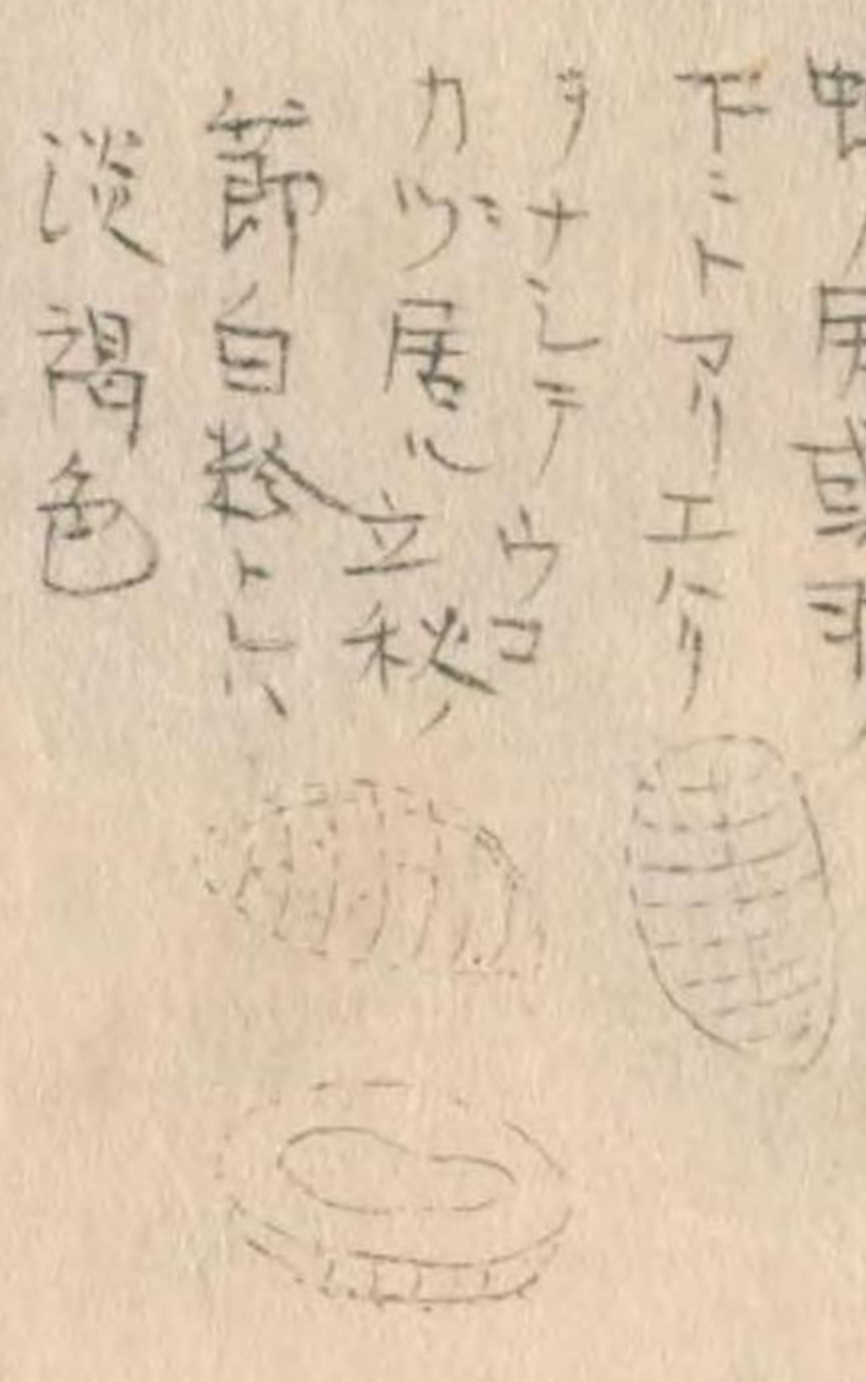 虫ノ居或ハ
下ニトマリエハリ
ヲナシテウコ
カヅ居ル立秋ノ
節白粉ト
淡褐色